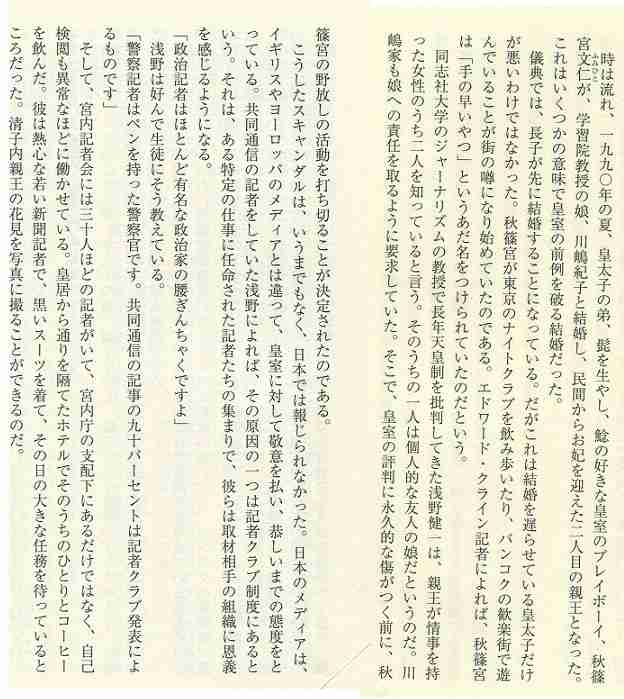 時は流れ、一九九〇年の夏、皇太子の弟、髭を生やし、鯰の好きな皇室のプレイボーイ、秋篠
宮文仁が、学習院教授の娘、川嶋紀子と結婚し、民間からお妃を迎えた二人目の親王となった。
これはいくつかの意味で皇室の前例を破る結婚だった。
儀典では、長子が先に結婚することになっている。だがこれは結婚を遅らせている皇太子だけ
が悪いわけではなかった。秋篠宮が東京のナイトクラブを飲み歩いたり、バンコクの歓楽街で遊
んでいることが街の噂になり始めていたのである。エドワード・クライン記者によれば、秋篠宮
は「手の早いやつ」というあだ名をつけられていたのだという。
同志社大学のジャーナリズムの教授で長年天皇制を批判してきた浅野健一は、親王が情事を持
った女性のうち二人を知っていると言う。そのうちの一人は個人的な友人の娘だというのだ。川
嶋家も娘への責任を取るように要求していた。そこで、皇室の評判に永久的な傷がつく前に、秋
篠宮の野放しの活動を打ち切ることが決定されたのである。
こうしたスキャンダルは、いうまでもなく、日本では報じられなかった。日本のメディアは、
イギリスやヨーロッパのメディアとは違って、皇室に対して敬意を払い、恭しいまでの態度をと
っている。共同通信の記者をしていた浅野によれば、その原因の一つは記者クラブ制度にあると
いう。それは、ある特定の仕事に任命された記者たちの集まりで、彼らは取材相手の組織に恩義
を感じるようになる。
「政治記者はほとんど有名な政治家の腰ぎんちゃくですよ」
浅野は好んで生徒にそう教えている。
「警察記者はペンを持った警察官です。共同通信の記事の九十パーセントは記者クラブ発表によ
るものです」
そして、宮内記者会には三十人ほどの記者がいて、宮内庁の支配下にあるだけではなく、自己
検閲も異常なほどに働かせている。皇居から通りを隔てたホテルでそのうちのひとりとコーヒー
を飲んだ。彼は熱心な若い新聞記者で、黒いスーツを着て、その日の大きな任務を待っていると
ころだった。清子内親王の花見を写真に撮ることができるのだ。